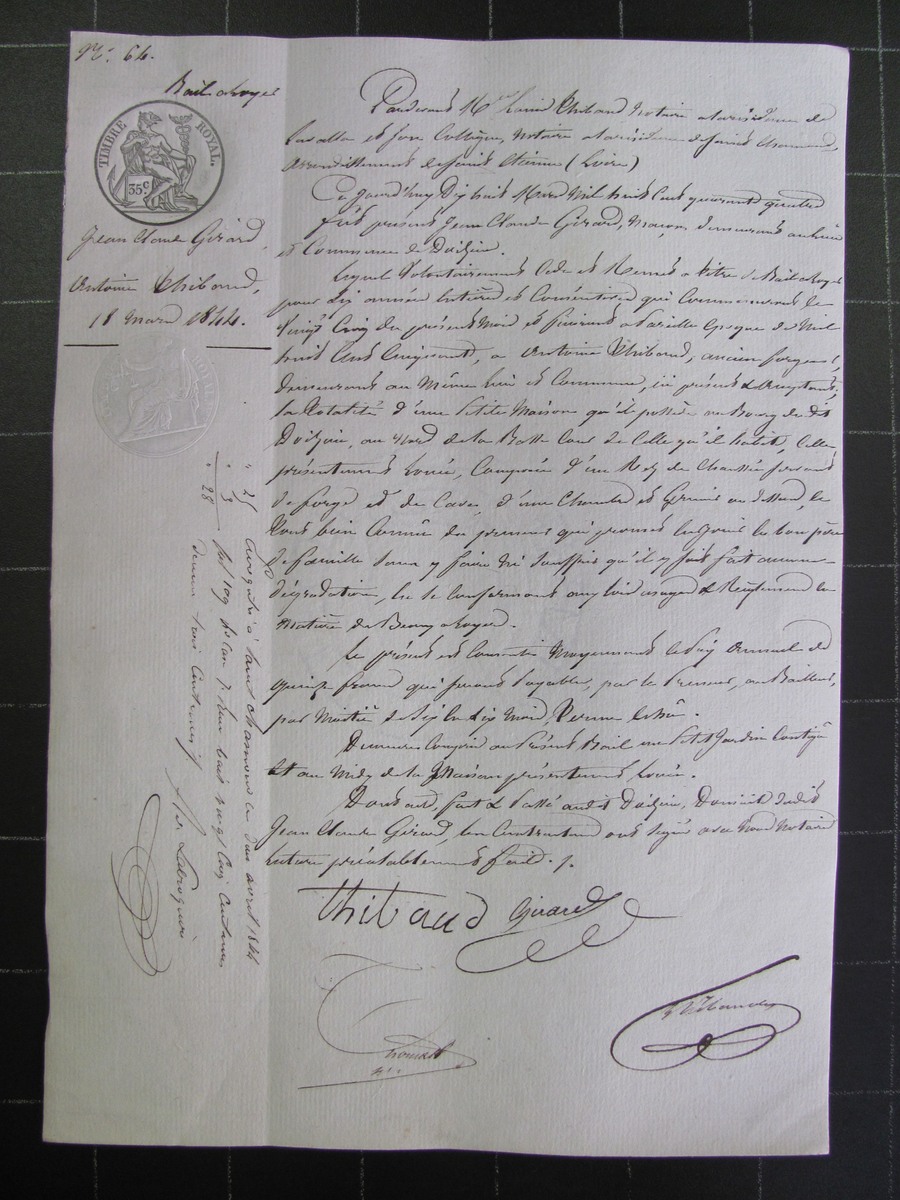 N.º 64.
Bail à Loyer
TIMBRE ROYAL.
35 c.
Jean Claude Gérard,
Antoine Thibaud,
18 mars 1844.
Pardevant M.e Louis Thibaud Notaire à la résidence de
Lavalla et son Collègue, Notaire à la résidence de Saint Chamond,
arrondissement de Saint Etienne (Loire)
Ce jourd'huy Dix huit Mars Mil huit cent quarante quatre
fut présent Jean Claude Gérard, Maçon, demeurant au lieu
et Commune de Doizieu.
Lequel Volontairement Cède et Remet à titre de Bail à Loyer
pour Six années entières et Consécutives qui Commenceront le
Vingt Cinq du présent Mois et finiront à Pareille époque de Mil
huit cent Cinquante, à Antoine Thibaud, ancien forgeur,
demeurant au même lieu et Commune, ici présent & acceptant,
la totalité d'une Petite Maison qu'il possède au Bourg de dt
Doizieu, au Nord de la Basse Cour de Celle qu'il habite, Celle
présentement Louée, Composée d'un Rez de Chaussée servant
de forge et de Cave, d'une Chambre et Grenier au dessus, le
tout bien Connu du preneur qui promet en Jouir en bon père
de famille sans y faire ni Souffrir qu'il y soit fait aucune
dégradation, en se Conformant aux lois usages & Règlements en
matière de Baux à Loyer.
Le présent est Consenti Moyennant le Prix Annuel de
quinze francs qui seront Payables, par le Preneur, au Bailleur,
par Moitié de Six en Six Mois,
Demeure Compris au Présent Bail un Petit Jardin Contigu
et au Midy de la Maison présentement Louée.
Dont acte, fait & Passé audit Doizieu, Domicile dudit
Jean Claude Gérard, les Contractants ont signé avec Nous Notaires
lecture préalablement faite.
Thibaud Girard
Thibaud
Enregistré à Saint Chamond le deux avril 1844
fol 109 Reçu vingt Cinq Centimes
decime trois Centimes
25
3
28